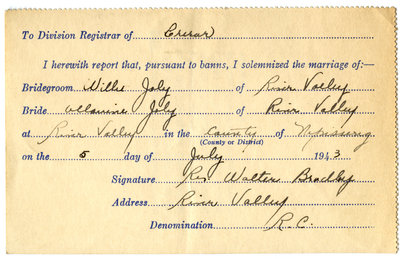 To Division Registrar of Crerar
I herewith report that, pursuant to banns, I solemnized the marriage of:—
Bridegroom Willie Joly of River Valley
Bride Joly of River Valley
at River Valley in the County of Nipissing
(County or District)
on the 5 day of July 1943
Signature Rev Walter Bradley
Address River Valley
Denomination R.C.